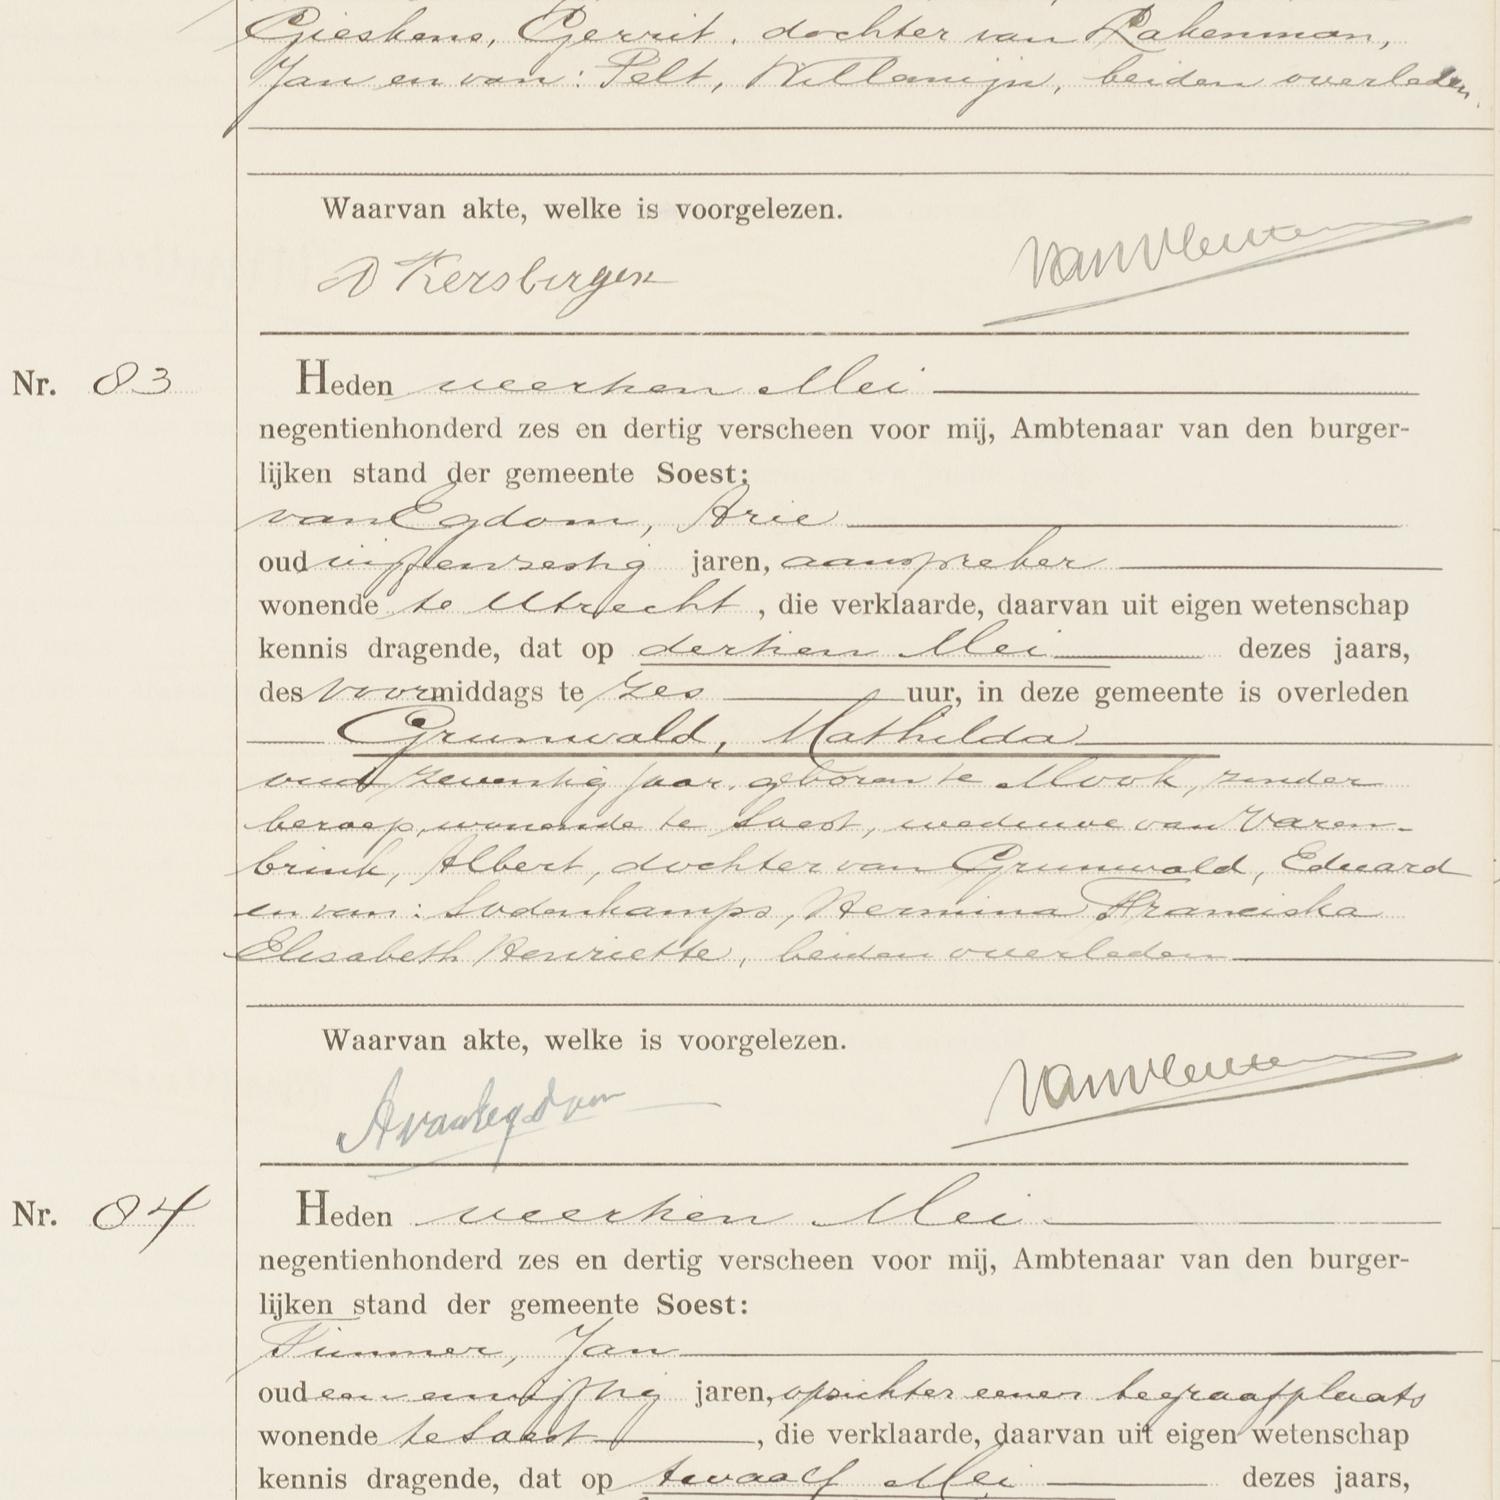 Gieskens, Gerrit, dochter van Rakenman,
Jan en van: Pelt, Willemijn, beiden overleden.
Waarvan akte, welke is voorgelezen.
D Kersbergen
Nr. 83 Heden veertien Mei
negentienhonderd zes en dertig verscheen voor mij, Ambtenaar van den burger-
lijken stand der gemeente Soest:
van Egdom, Arie
oud vijfenzestig jaren, aanspreker
wonende te Utrecht, die verklaarde, daarvan uit eigen wetenschap
kennis dragende, dat op dertien Mei dezes jaars,
des voormiddags te zes uur, in deze gemeente is overleden
Grunwald, Mathilda
oud zeventig jaar, geboren te Mook, zonder
beroep, wonende te Soest, weduwe van Varen-
brink, Albert, dochter van Grunwald, Eduard
en van: Lodenkamps, Hermina Franciska
Elisabeth Henriette, beiden overleden
Waarvan akte, welke is voorgelezen.
A van Egdom
Nr. 84 Heden veertien Mei
negentienhonderd zes en dertig verscheen voor mij, Ambtenaar van den burger-
lijken stand der gemeente Soest:
Timmer, Jan
oud een envijftig jaren, opzichter eener begraafplaats
wonende te Soest, die verklaarde, daarvan uit eigen wetenschap
kennis dragende, dat op twaalf Mei dezes jaars,